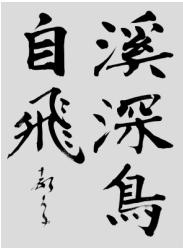 溪深鳥
自飛